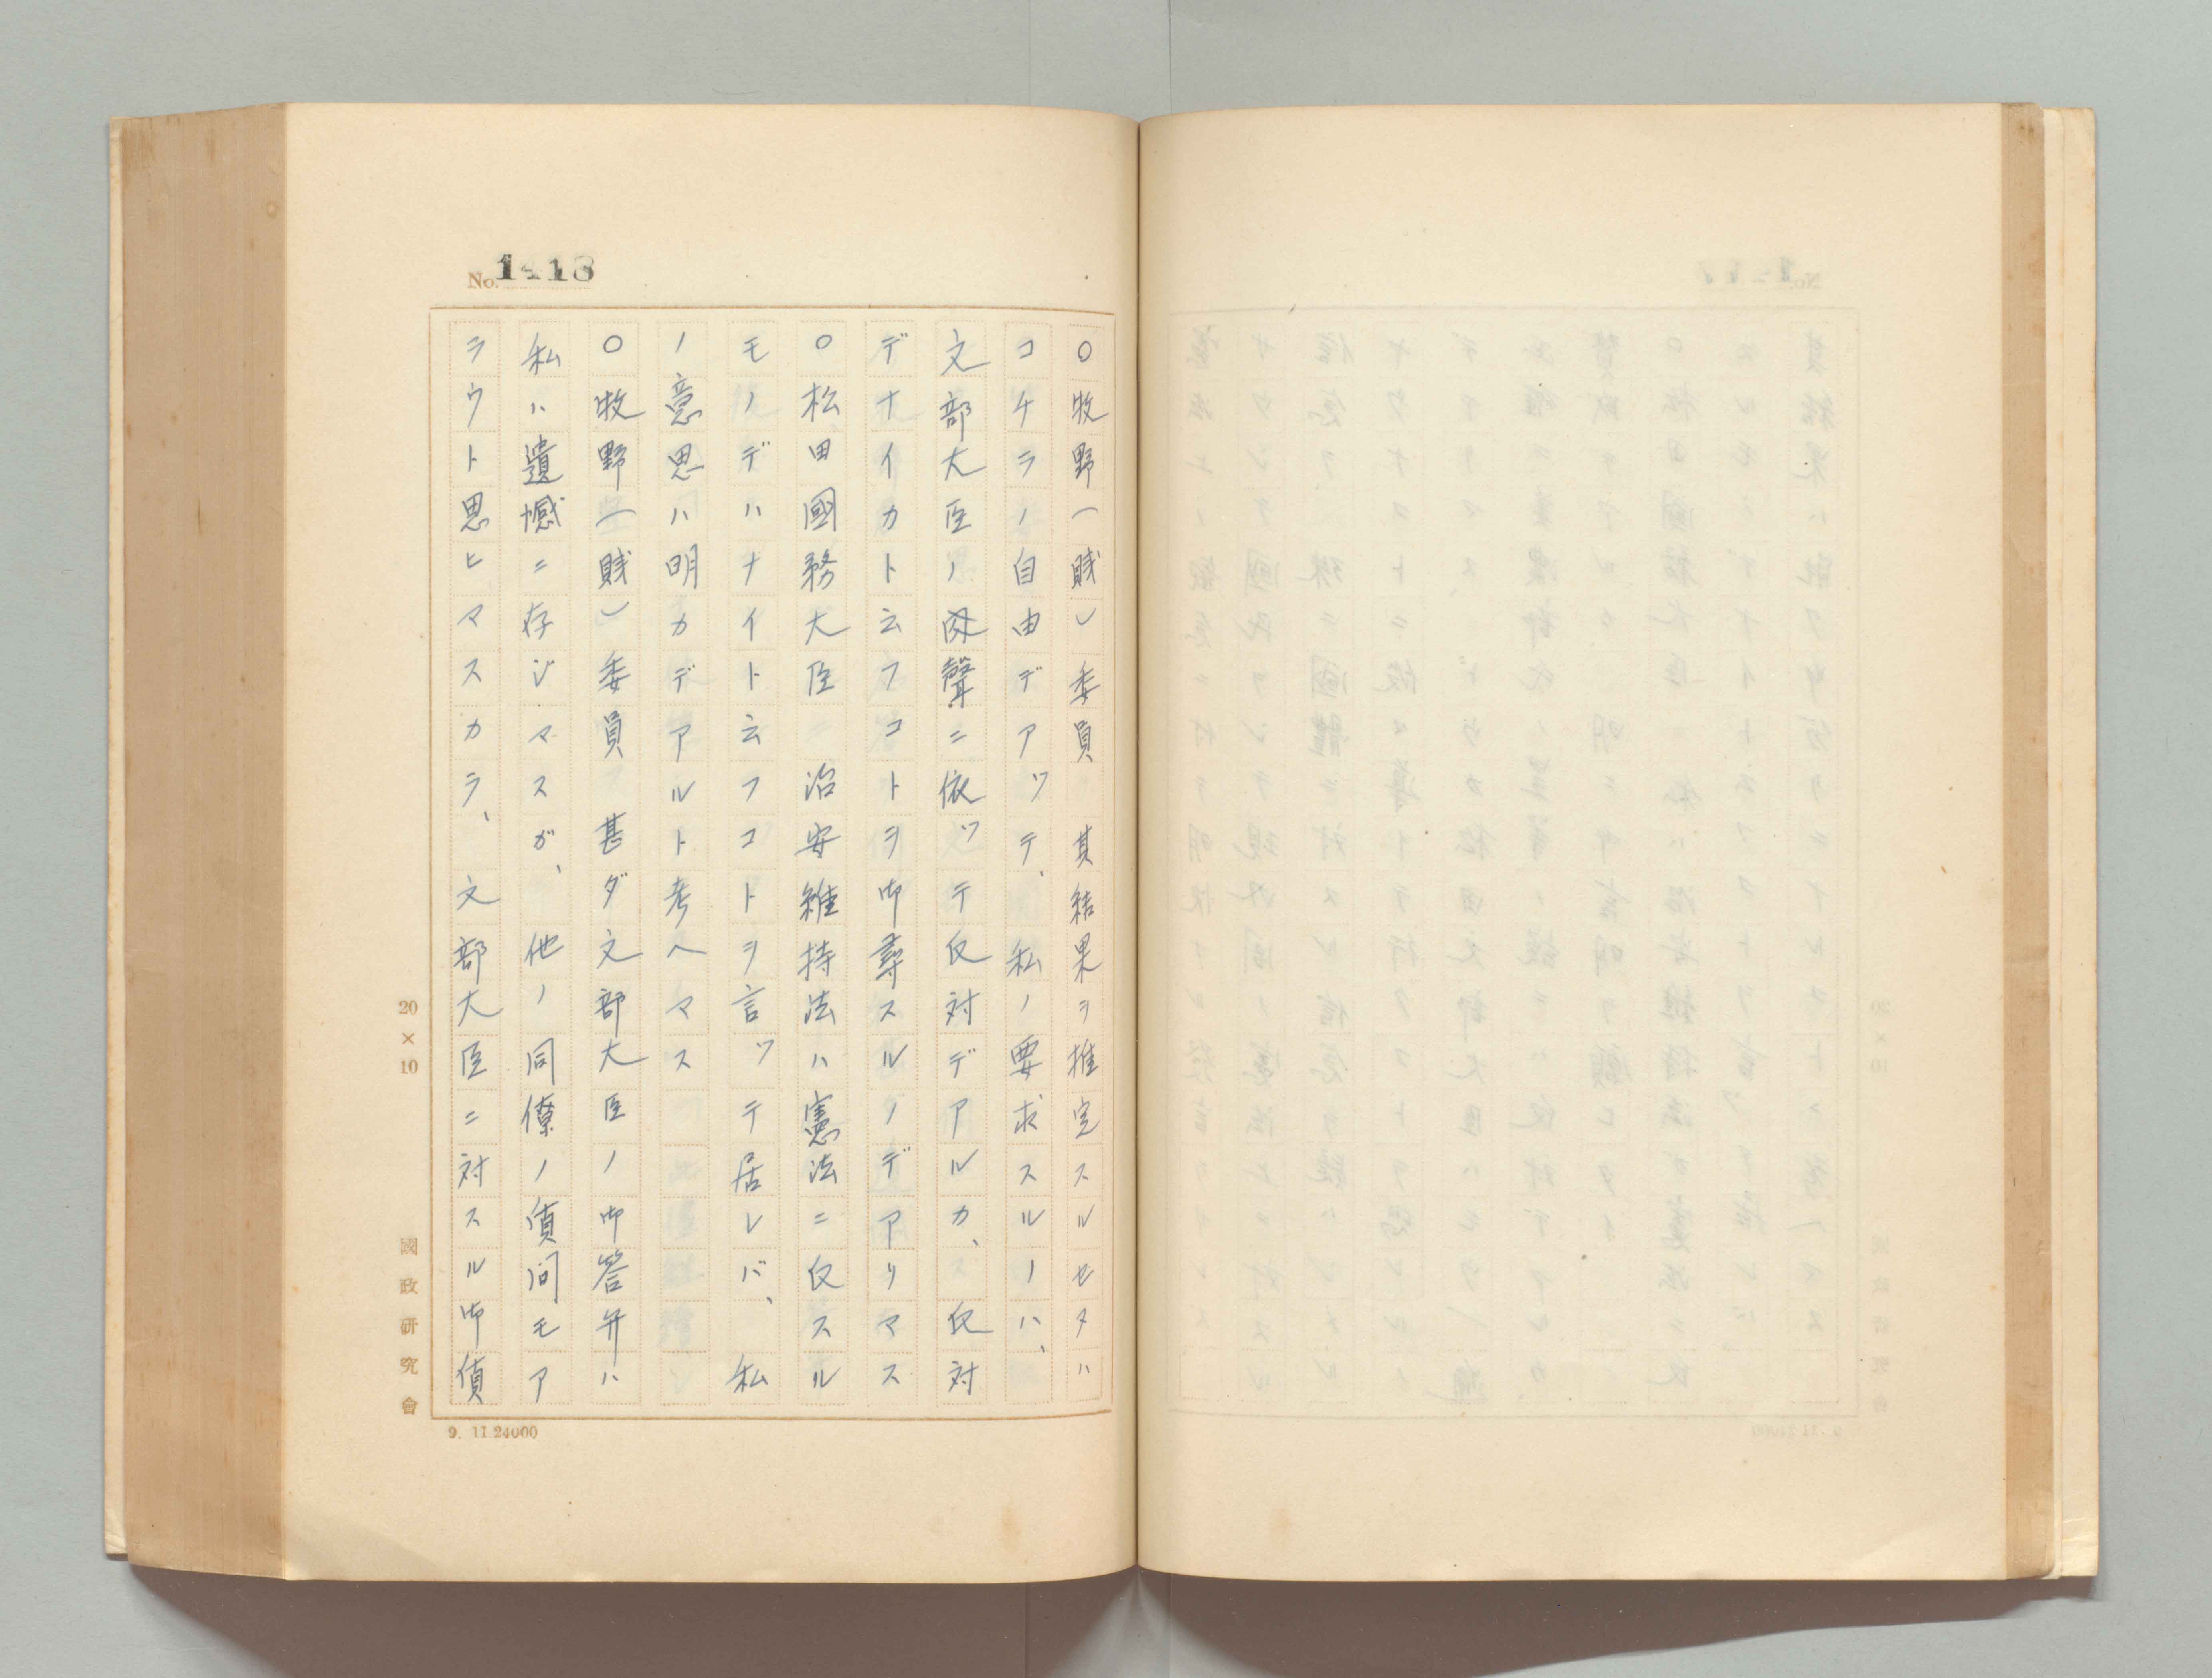 No. 1418
〇牧野(賤)委員　其結果ヲ推定スルセタハ
コチラノ自由デアッテ、私ノ要求スルノハ、
文部大臣ノ肉聲ニ依ッテ反対デアルカ、反対
デナイカト云フコトヲ御尋スルノデアリマス
〇松田國務大臣　治安維持法ハ憲法ニ反スル
モノデハナイト云フコトヲ言ッテ居レバ、私
ノ意思ハ明カデアルト考ヘマス
〇牧野(賤)委員　甚ダ文部大臣ノ御答弁ハ
私ハ遺憾ニ存ジマスガ、他ノ同僚ノ偵問モア
ラウト思ヒマスカラ、文部大臣ニ対スル御偵
20×10
國政研究會
9. 11.24000